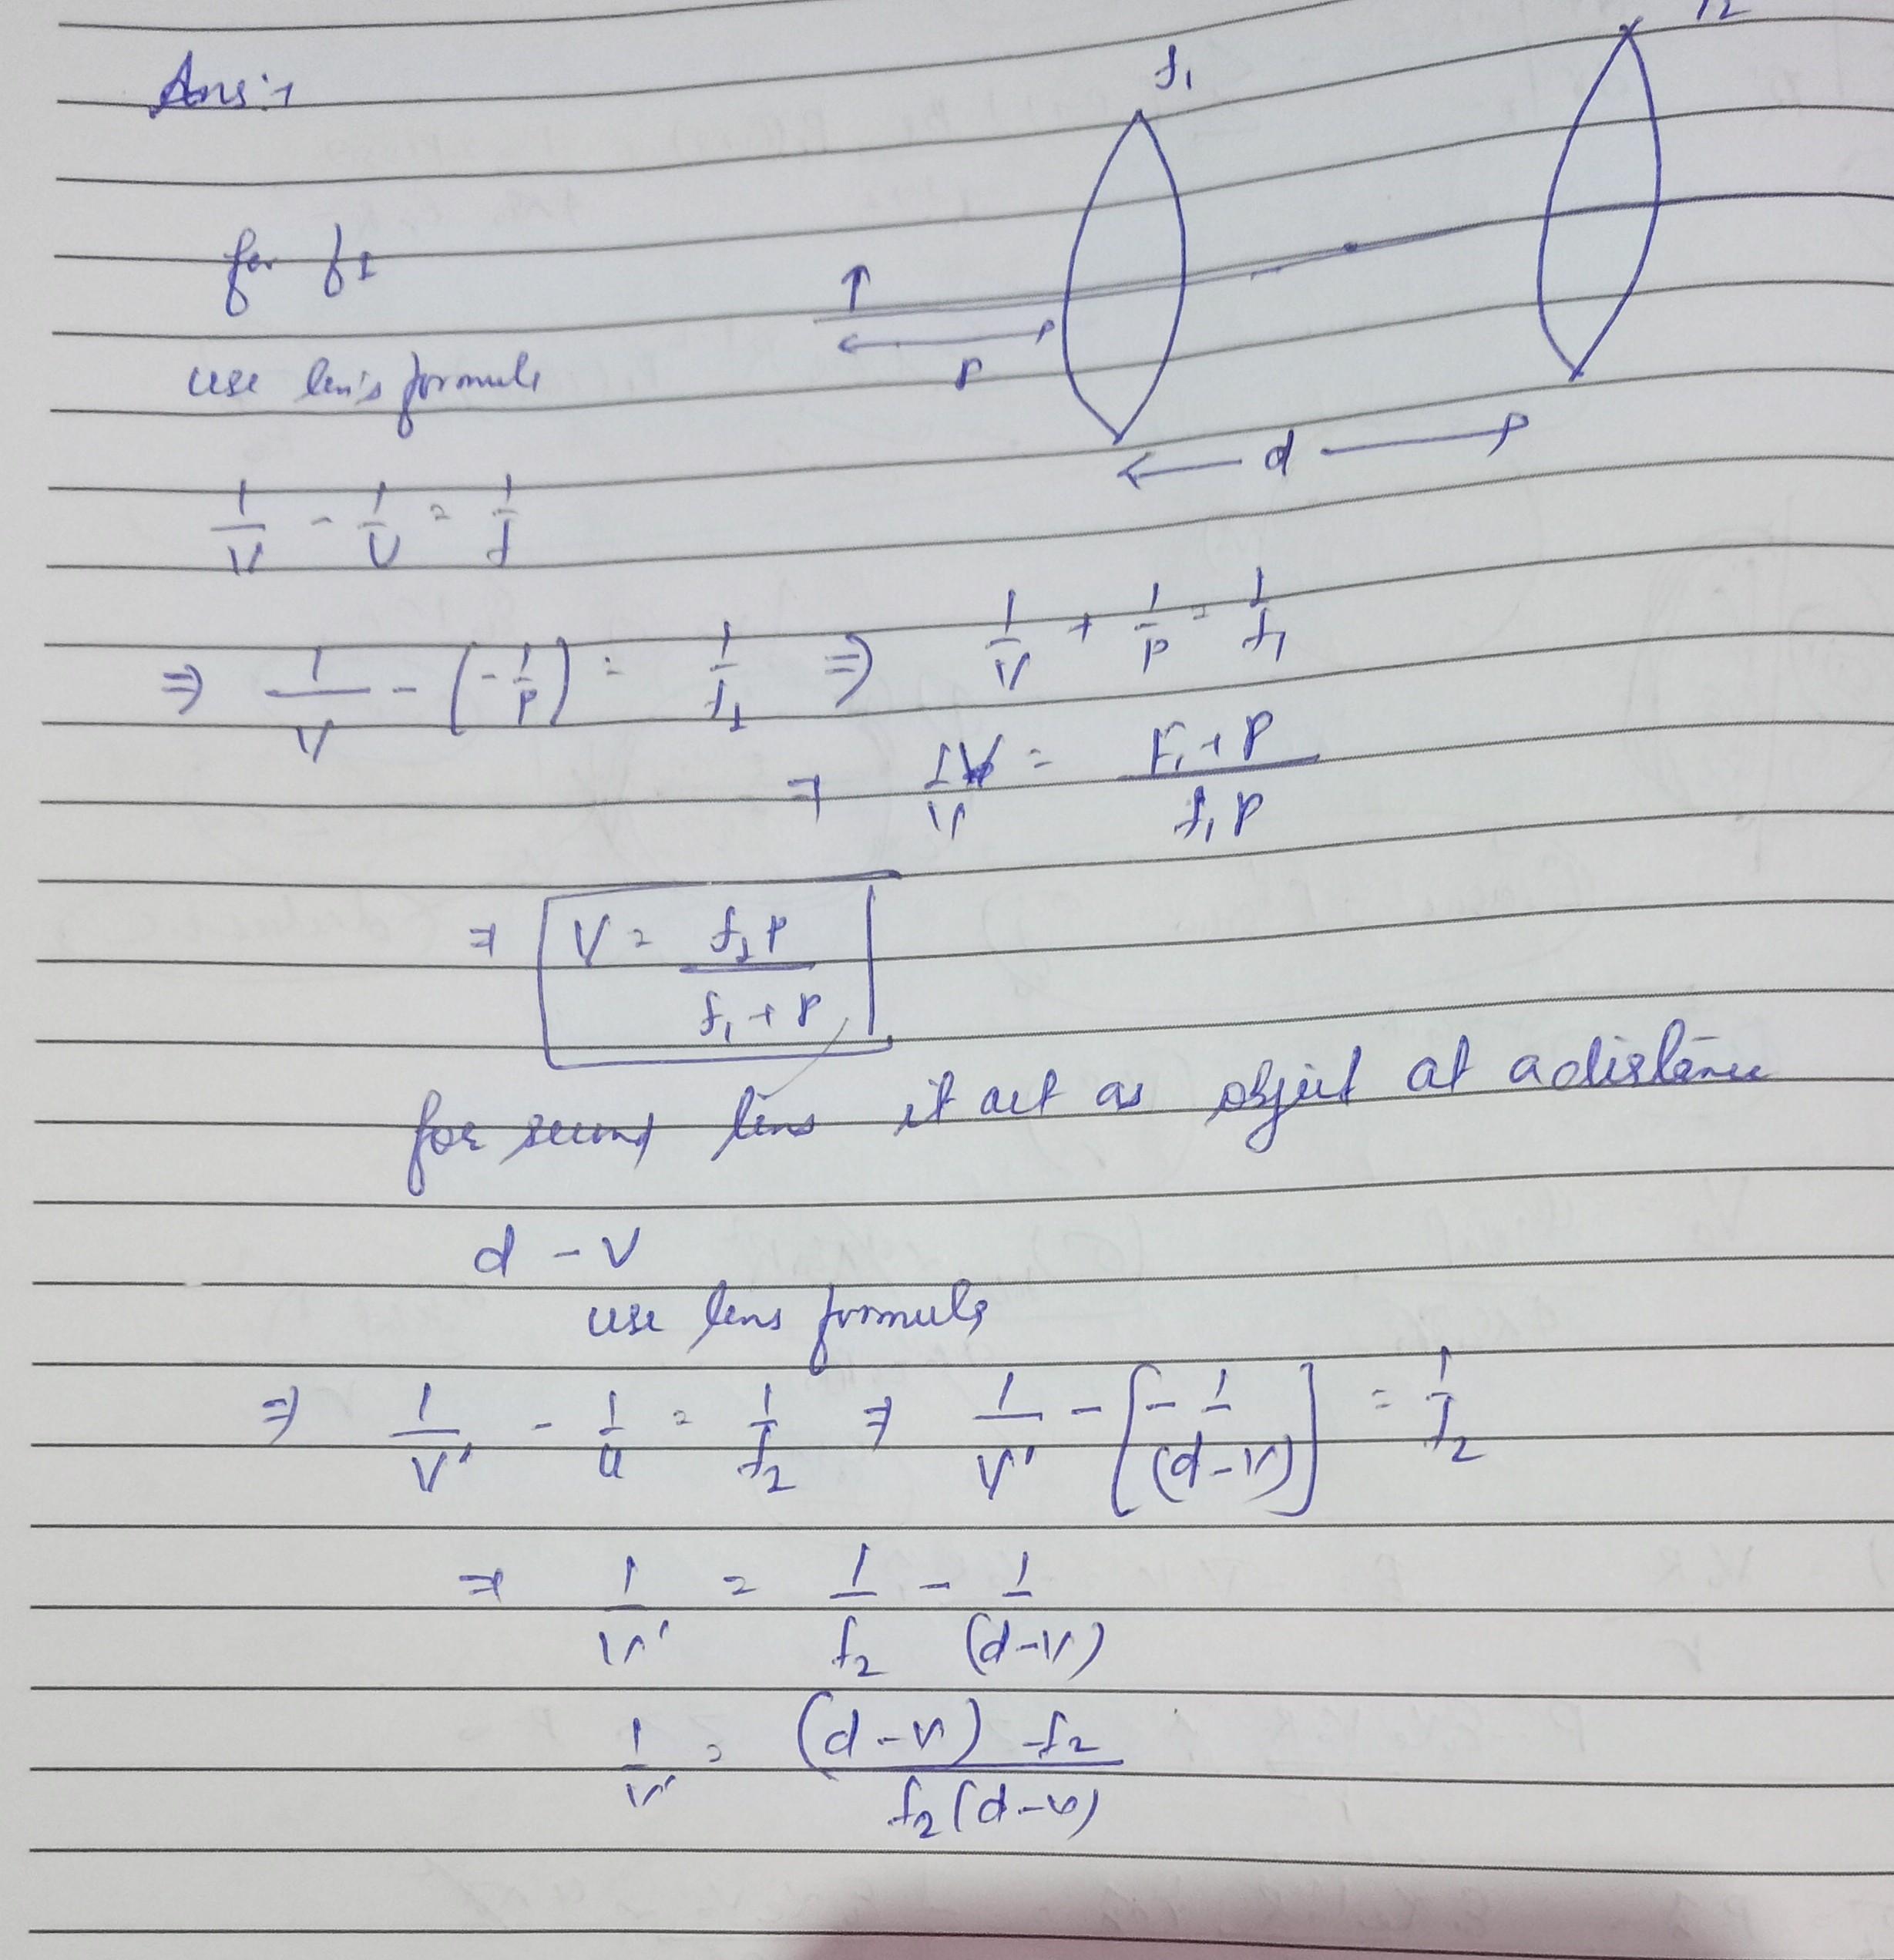 Ans:-
f₁
f₂
for f₁
↑
P
use len's formula
← d →
1/V - 1/U = 1/f
⇒ 1/V - (-1/P) = 1/f₁ ⇒ 1/V + 1/P = 1/f₁
⇒ 1/V = F₁+P / f₁P
⇒ V = f₁P / f₁+P
for second lens it act as object at a distance
d - V
use lens formula
⇒ 1/V' - 1/u = 1/f₂ ⇒ 1/V' - [-1/(d-V)] = 1/f₂
⇒ 1/V' = 1/f₂ - 1/(d-V)
1/V' = (d-V) -f₂ / f₂(d-V)